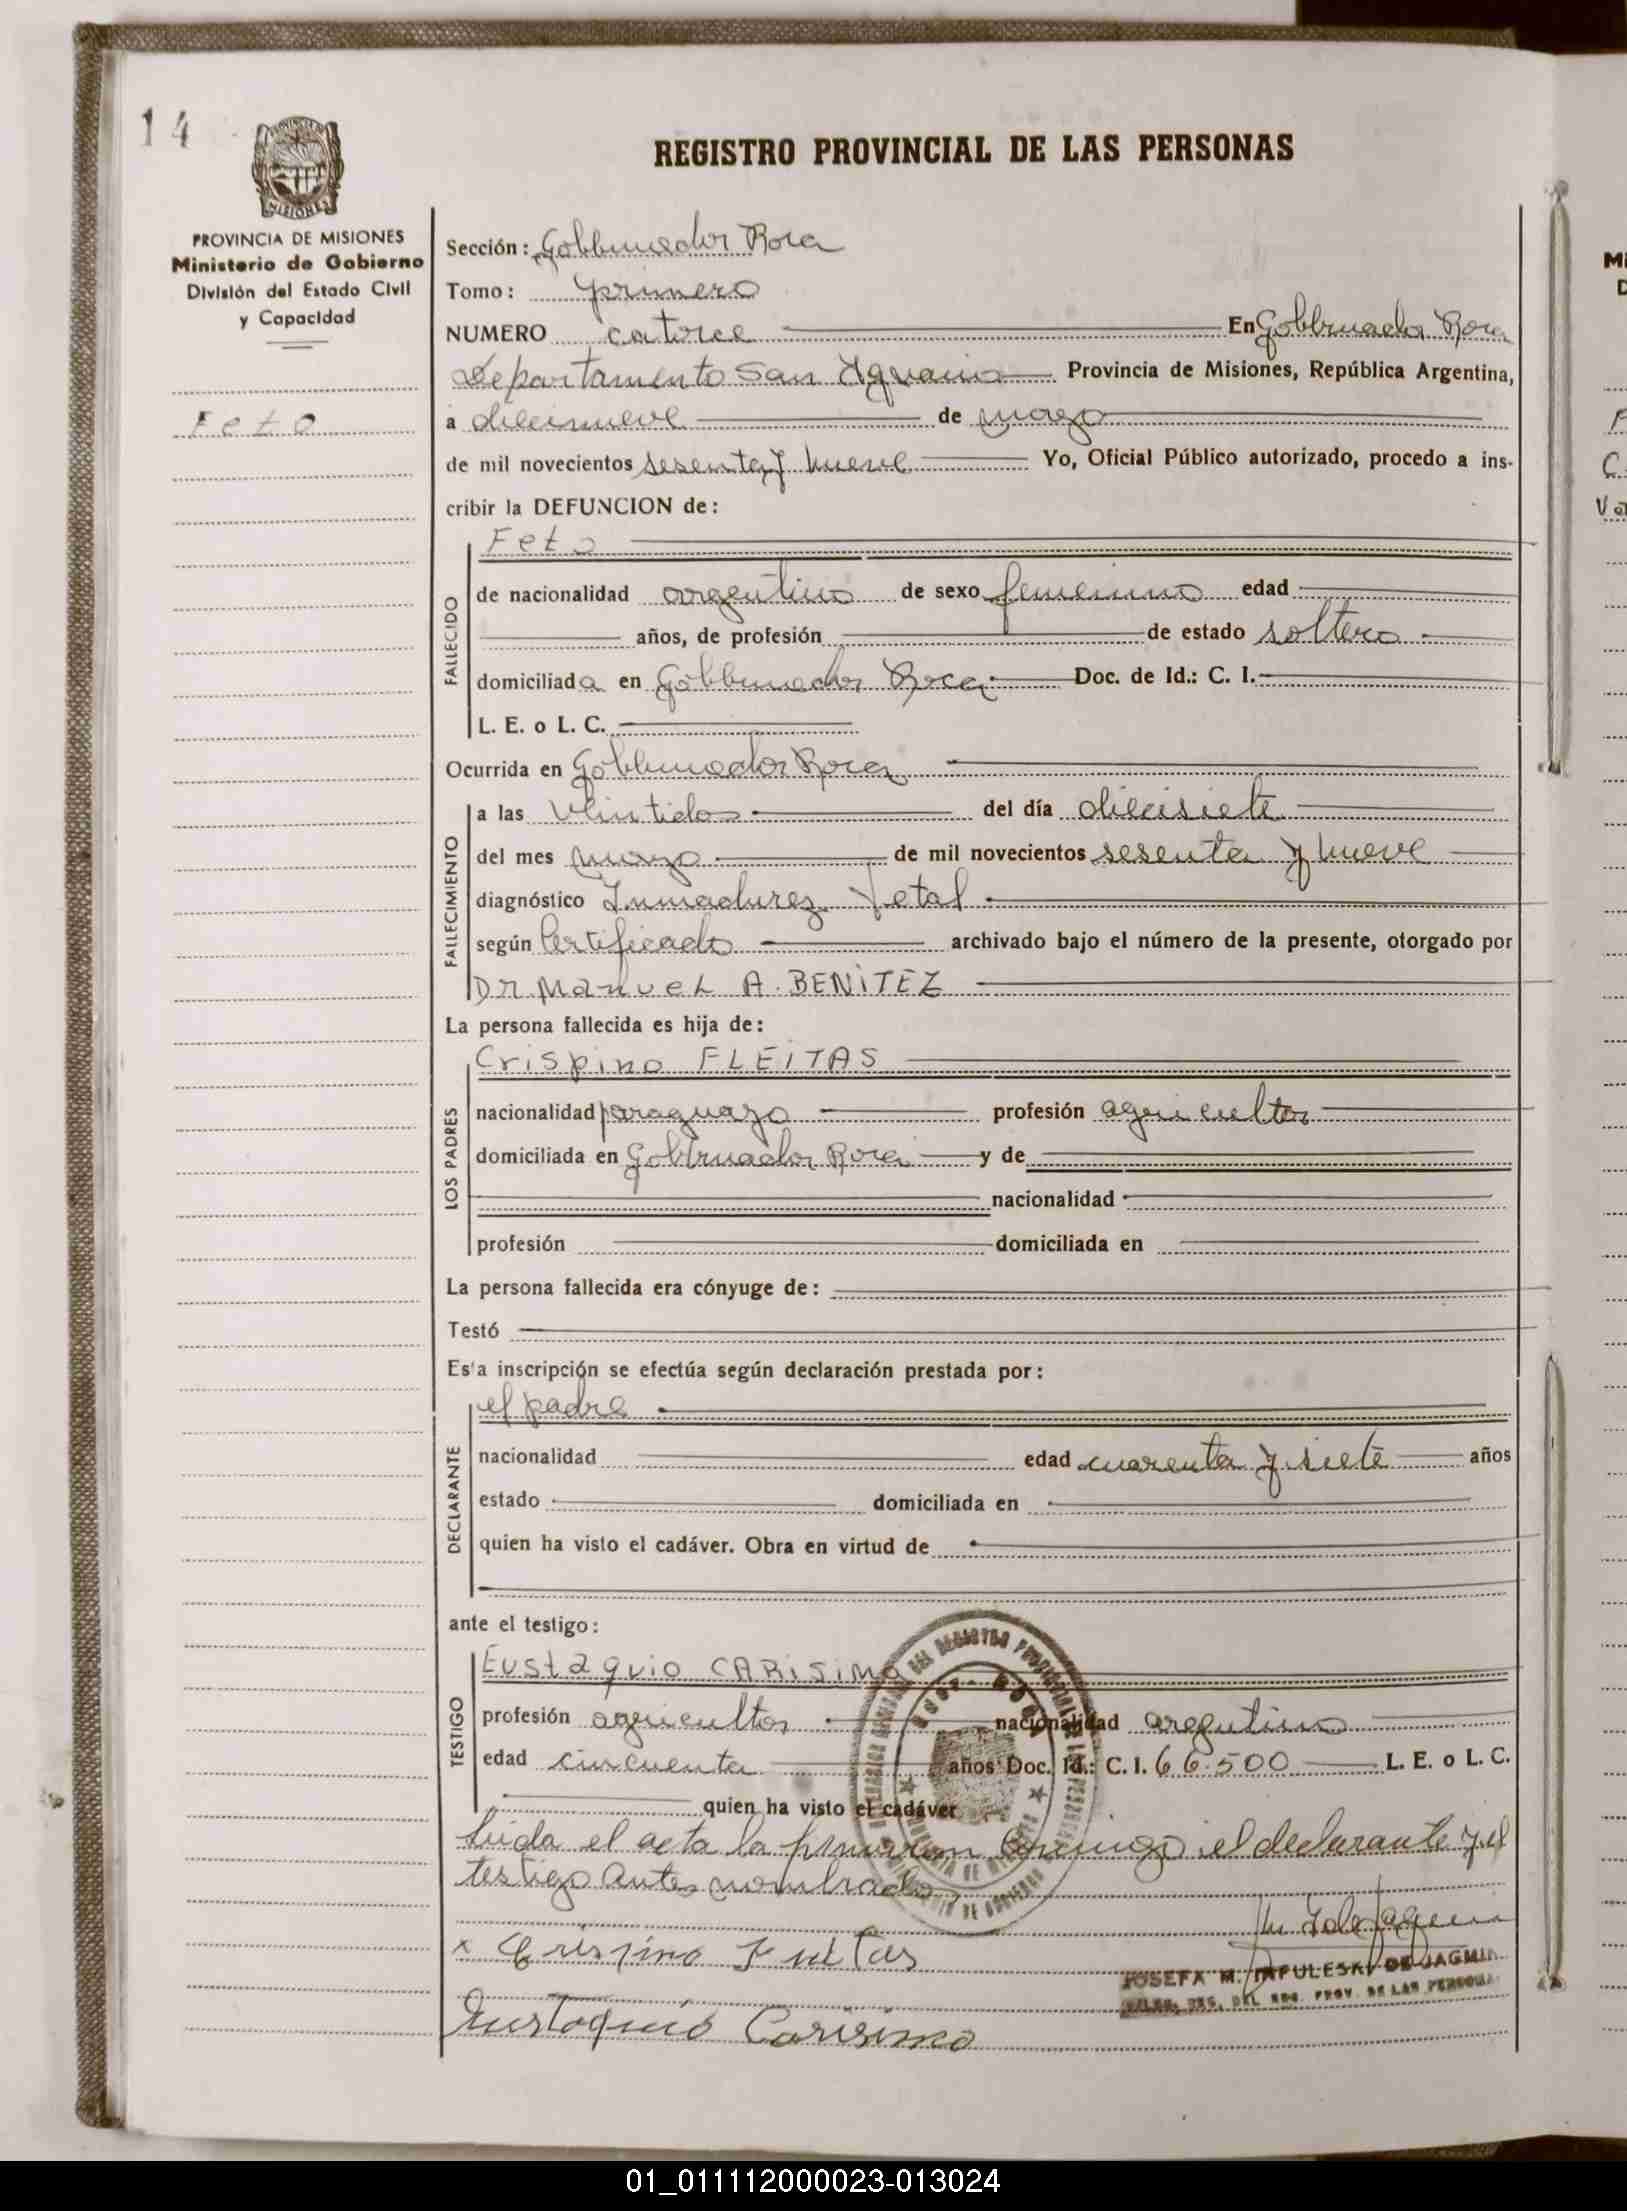 14
PROVINCIA DE
MISIONES
REGISTRO PROVINCIAL DE LAS PERSONAS
PROVINCIA DE MISIONES
Ministerio de Gobierno
División del Estado Civil
y Capacidad
Feto
Sección: Gobernador Roca
Tomo: primero
NUMERO catorce En Gobernador Roca
Departamento San Ygnacio Provincia de Misiones, República Argentina,
a diecinueve de mayo
de mil novecientos sesenta y nueve Yo, Oficial Público autorizado, procedo a ins-
cribir la DEFUNCION de:
Feto
FALLECIDO
de nacionalidad argentino de sexo femenino edad
años, de profesión de estado soltero
domiciliada en Gobernador Roca Doc. de Id.: C. I.
L. E. o L. C.
Ocurrida en Gobernador Roca
FALLECIMIENTO
a las veintidos del día diecisiete
del mes mayo de mil novecientos sesenta y nueve
diagnóstico Inmadurez Fetal
según Certificado archivado bajo el número de la presente, otorgado por
Dr Manuel A. BENITEZ
La persona fallecida es hija de:
LOS PADRES
Crispino FLEITAS
nacionalidad paraguayo profesión agricultor
domiciliada en Gobernador Roca y de
nacionalidad
profesión domiciliada en
La persona fallecida era cónyuge de:
Testó
Esta inscripción se efectúa según declaración prestada por:
DECLARANTE
el padre
nacionalidad edad cuarenta y siete años
estado domiciliada en
quien ha visto el cadáver. Obra en virtud de
ante el testigo:
TESTIGO
Eustaquio CARISIMO
profesión agricultor nacionalidad argentino
edad cincuenta años Doc. Id.: C. I. 66.500 L. E. o L. C.
quien ha visto el cadáver
Leida el acta la firmaron conmigo, el declarante y el
testigo antes nombrado
x Crispino Fleitas
JOSEFA M. DE JAGMIN
DEL REG. PROV. DE LAS PERSONAS
Eustaquio Carisimo
01_011112000023-013024